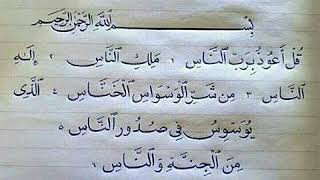 بِسْمِ ٱللَّهِ ٱلرَّحْمَٰنِ ٱلرَّحِيمِ
قُلْ أَعُوذُ بِرَبِّ ٱلنَّاسِ ١ مَلِكِ ٱلنَّاسِ ٢ إِلَٰهِ
ٱلنَّاسِ ٣ مِن شَرِّ ٱلْوَسْوَاسِ ٱلْخَنَّاسِ ٤ ٱلَّذِي
يُوَسْوِسُ فِي صُدُورِ ٱلنَّاسِ ٥
مِنَ ٱلْجِنَّةِ وَٱلنَّاسِ ٦